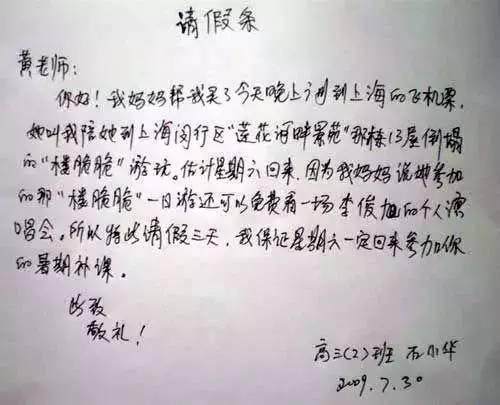 请假条
黄老师:
你好!我妈妈帮我买了今天晚上飞到上海的飞机票,
她叫我陪她到上海闵行区“莲花河畔景苑”那栋13层倒塌
的“楼脆脆”游玩。估计星期六回来,因为我妈妈说她参加
的那“楼脆脆”一日游还可以免费看一场李俊旭的个人演
唱会。所以特此请假三天,我保证星期六一定回来参加你
的暑期补课。
此致
敬礼!
高三(2)班 石小华
2009.7.30